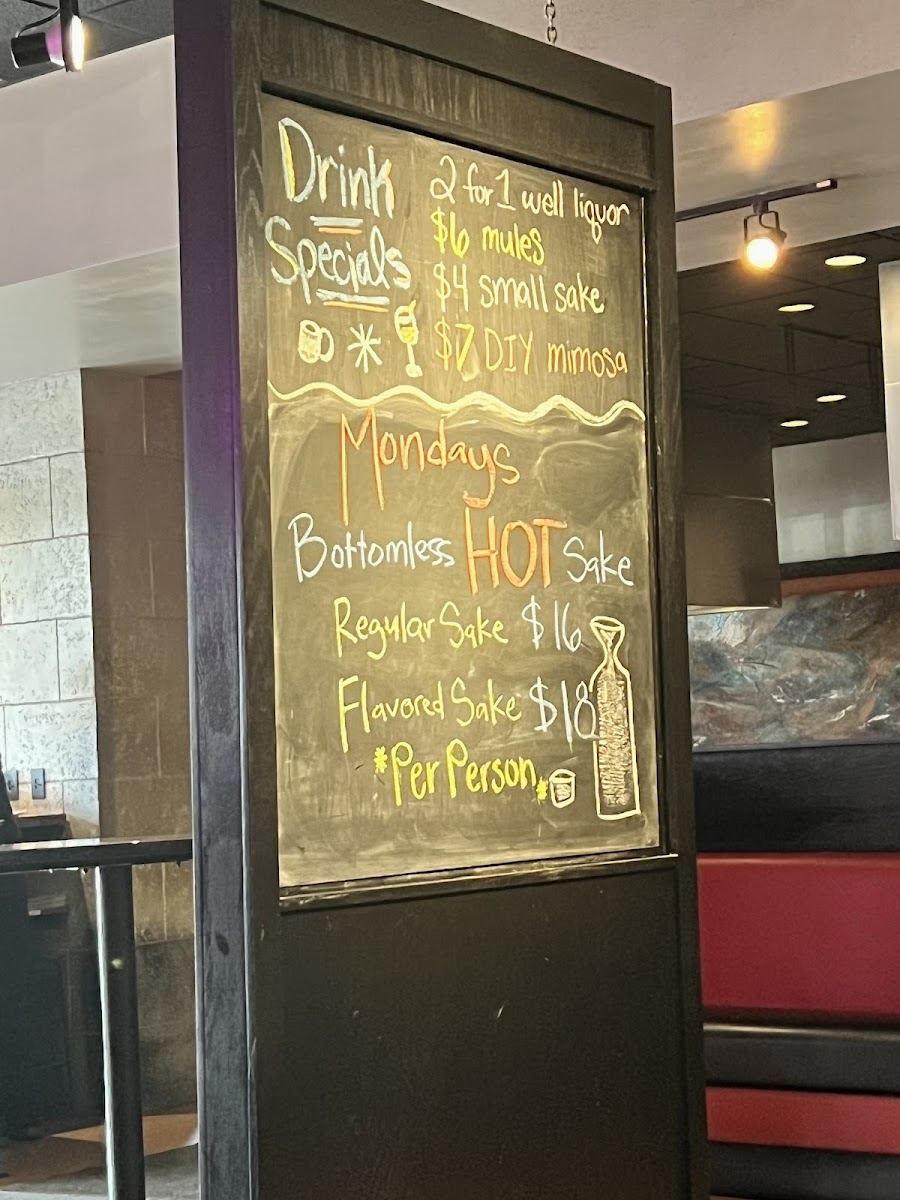 Drink
Specials
2 for 1 well liquor
$6 mules
$4 small sake
$7 DIY mimosa
Mondays
Bottomless HOT Sake
Regular Sake $16
Flavored Sake $18
*Per Person*